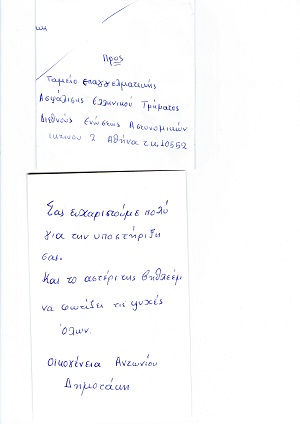 Προς
Ταμείο επαγγελματικής
Ασφάλισης Ελληνικού Τμήματος
Διεθνούς Ενώσεως Αστυνομικών
Ικτίνου 2 Αθήνα τ.κ. 10552
Σας ευχαριστούμε πολύ
για την υποστήριξη
σας.
Και το αστέρι της Βηθλεέμ
να φωτίζει τις ψυχές
όλων.
Οικογένεια Αντωνίου
Δημοτάκη